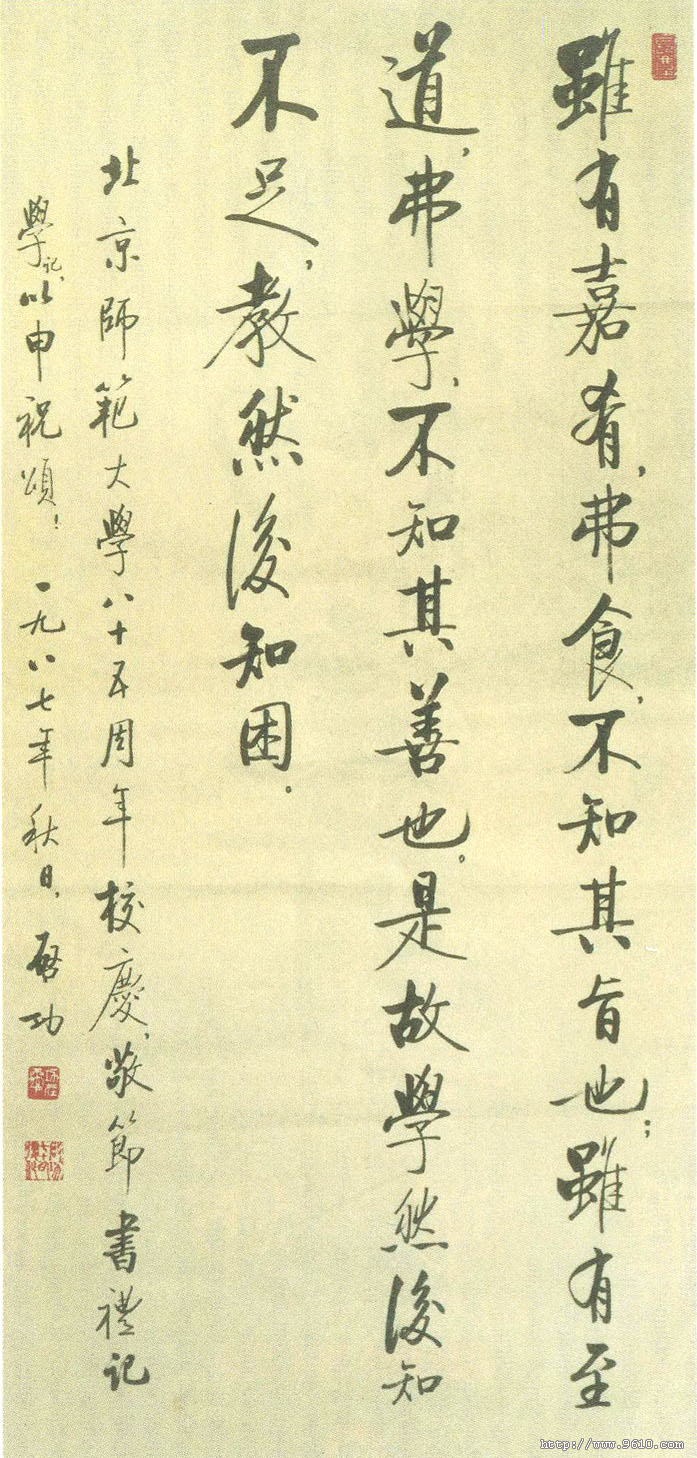 雖有嘉肴，弗食，不知其旨也；雖有至
道，弗學，不知其善也，是故學然後知
不足，教然後知困。
北京師範大學八十五周年校慶，敬節書禮記
學記，以申祝頌！一九八七年秋日，啓功
http://www.9610.com